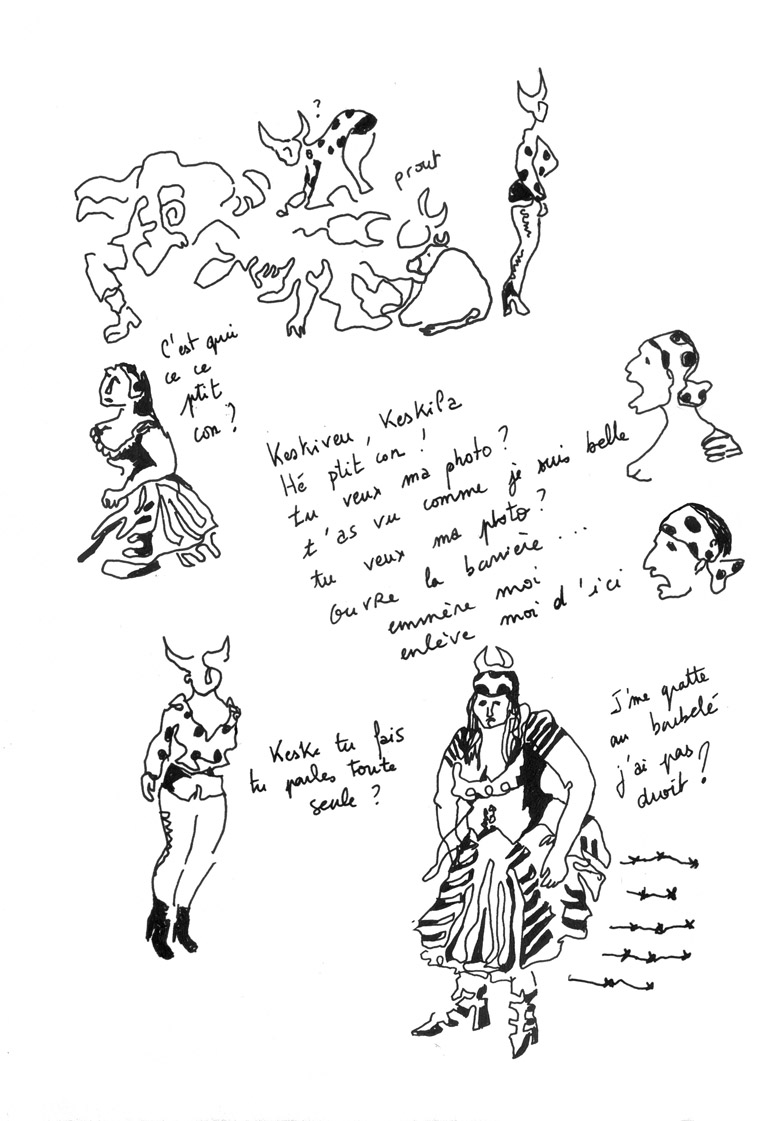 ?
prout
C'est qui
ce ce
ptit
con ?
Keskiveu, Keskila
Hé ptit con !
tu veux ma photo ?
t'as vu comme je suis belle
tu veux ma photo ?
ouvre la barrière ...
emmène moi
enlève moi d'ici
Keske tu fais
tu parles toute
seule ?
J'me gratte
au barbelé
j'ai pas
droit ?